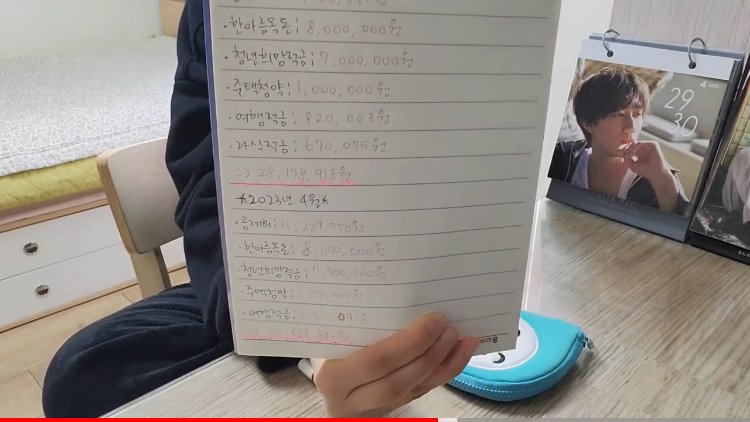 ·한아름목돈; 8,000,000원
·청년희망적금; 7,000,000원
·주택청약; 1,000,000원
·여행적금; 820,003원
·라식적금; 670,075원
=> 28,178,918원
★2023년 4월★
·공제회; 11,229,750원
·한아름목돈; 8,000,000원
·청년희망적금; 7,500,000원
·주택청약;
·여행적금;
4
29
30